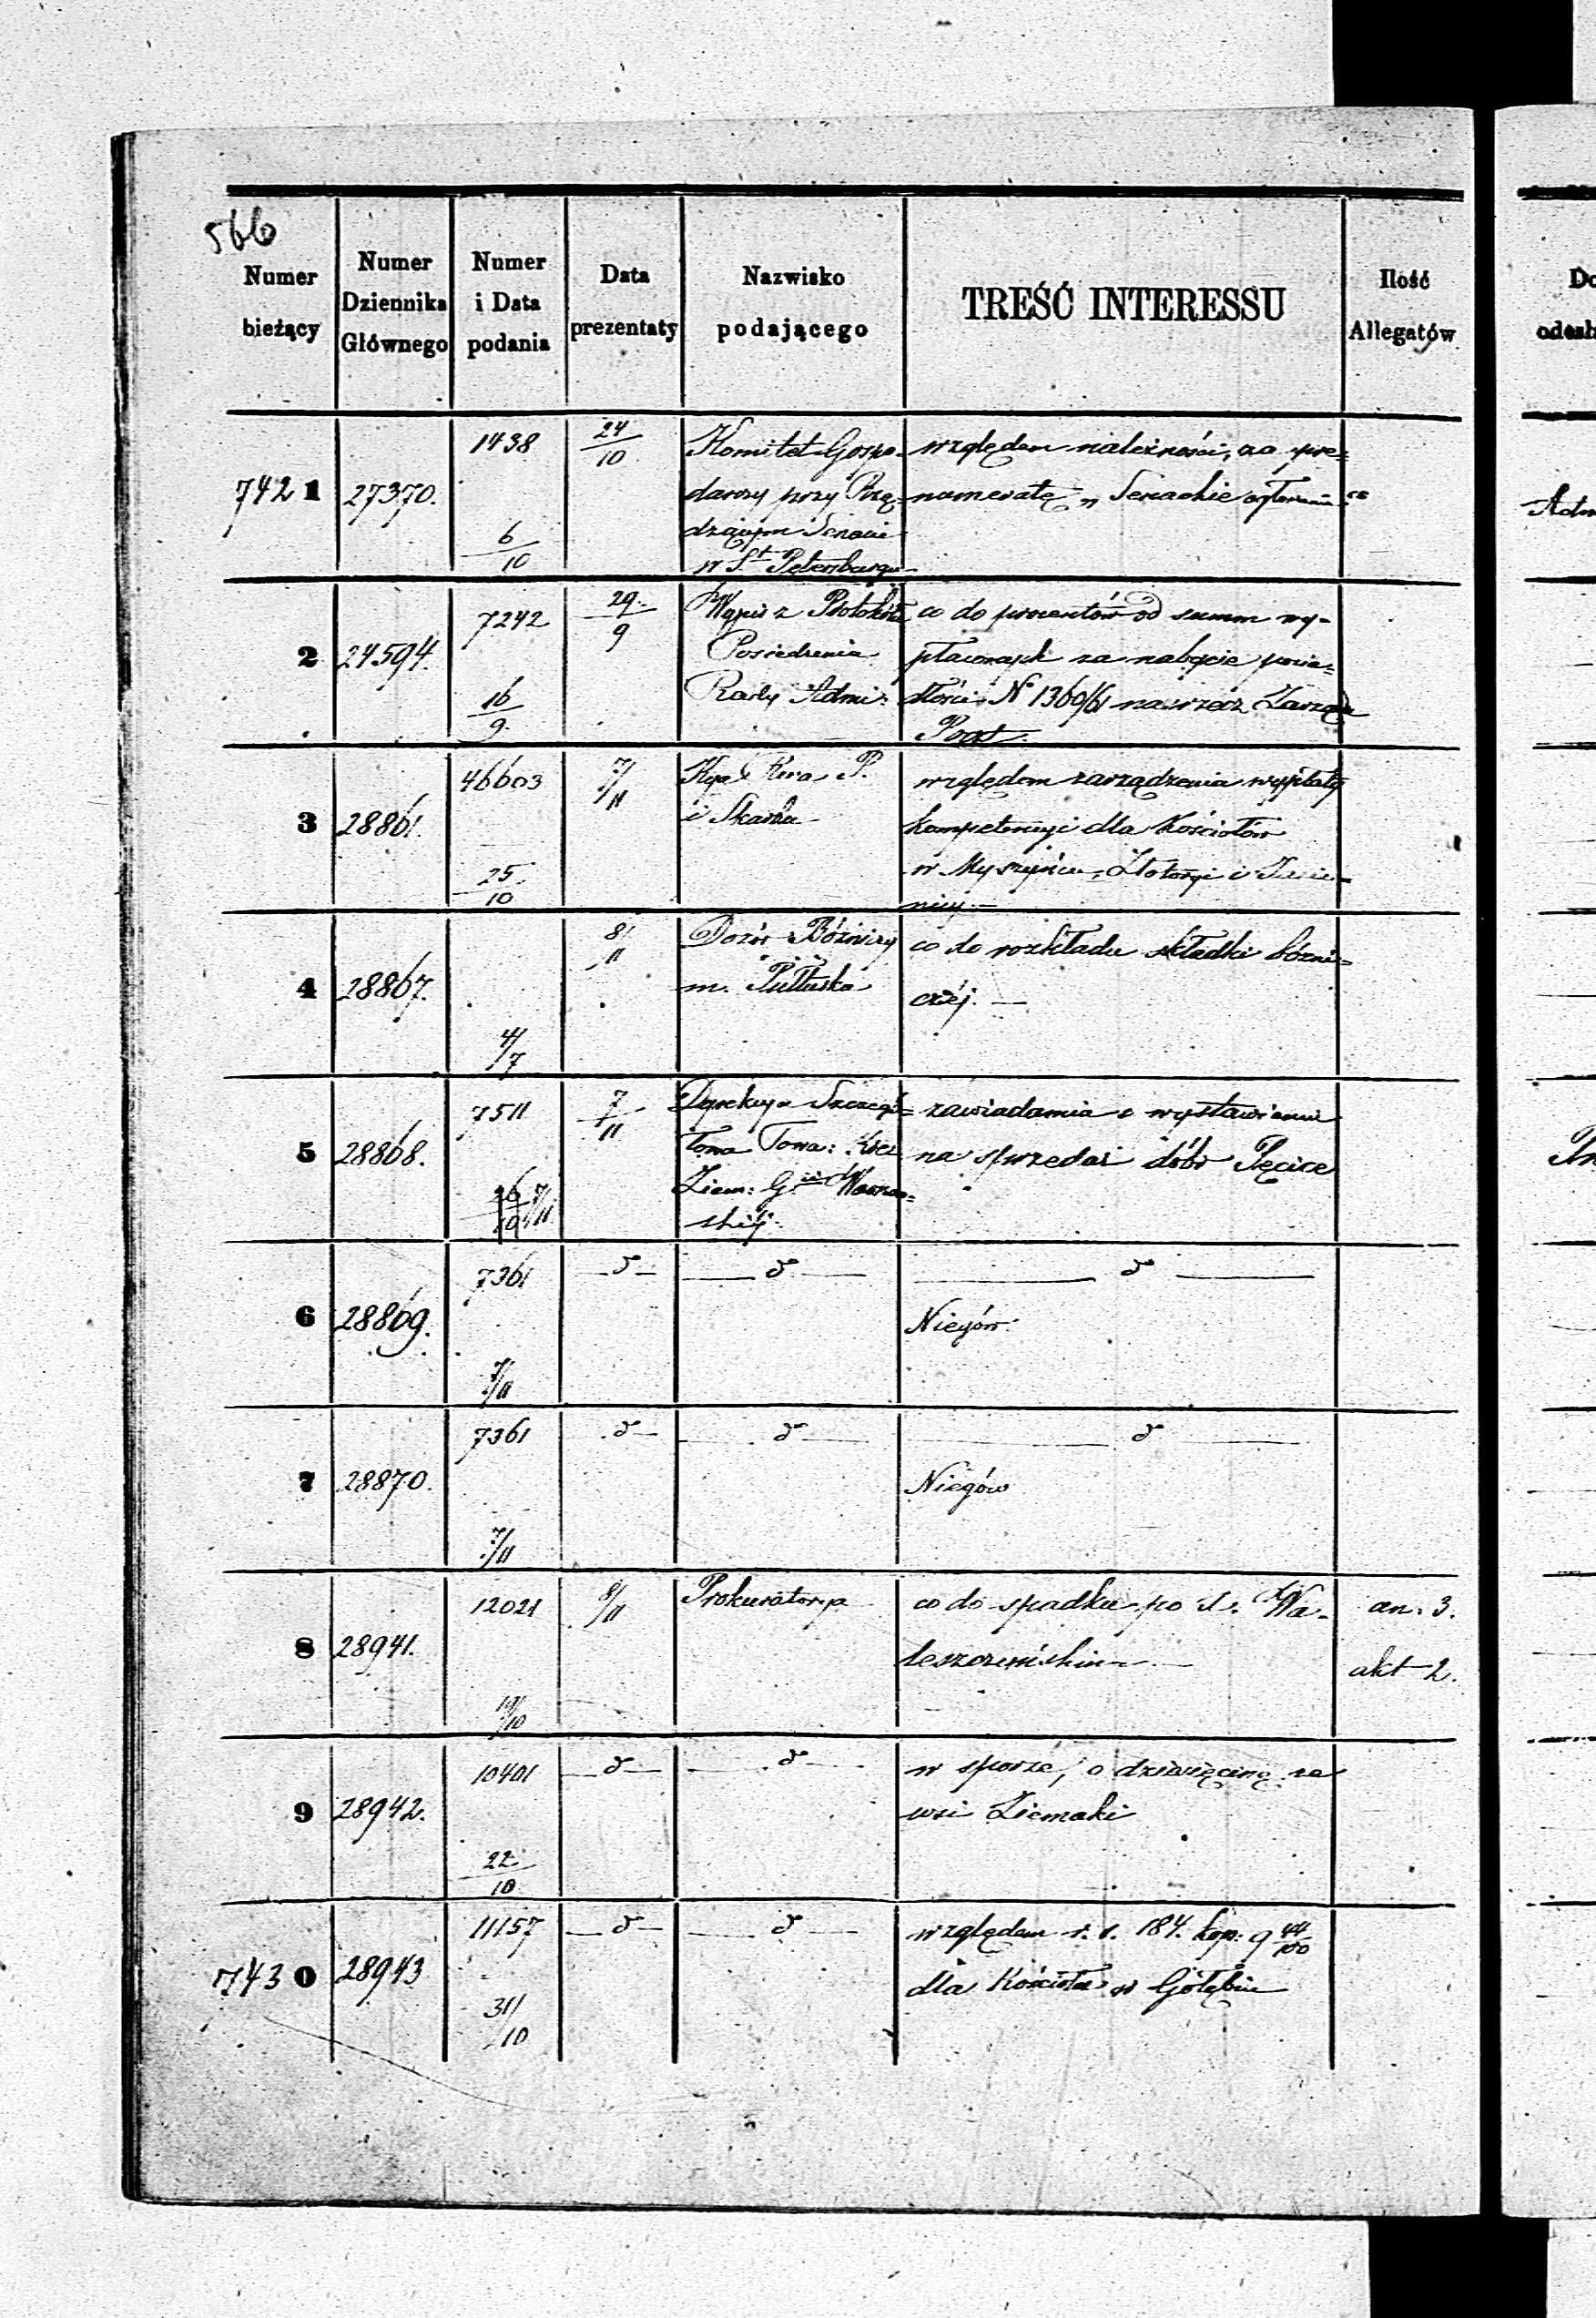 566
Numer bieżący
Numer Dziennika Głównego
Numer i Data podania
Data prezentaty
Nazwisko podającego
TREŚĆ INTERESSU
Ilość Allegatów
7421
27370.
1438
6/10
24/10
Komitet Gospo-
darczy przy Rzą-
dzącym Senacie
w St Petersburgu
względem należności za pre-
numeratę „Senackie ogłoszenia“
2
24594.
7242
16/9
29/9
Wypis z Protokółu
Posiedzenia
Rady Admi:
co do procentów od summ wy-
płaconych za nabycie posia-
dłości No 1360/61 na rzecz Zarządu
Poczt.
3
28861.
46603
25/10
7/11
P.
i Skarbu
względem zarządzenia wypłaty
kompetencyi dla Kościołów
w Myszyńcu, Złotoryi i Jasie-
nicy.—
4
28867.
4/7
8/11
Dozór Bóżniczy
m. Pułtuska
co do rozkładu składki bóżni-
czéj.—
5
28868.
7511
26/10 7/11
7/11
Dyrekcya Szczegó-
łowa Towa: Kred
Ziem: Gii Warsza-
skiéj.
zawiadamia o wystawieniu
na sprzedaż dóbr Pęcice
6
28869.
7361
7/11
—do—
—do—
—do—
Niegów.
7
28870.
7361
7/11
do—
—do—
—do—
Niegów
8
28941.
12021
19/10
8/11
Prokuratorya
co do spadku po
an. 3.
akt 2.
9
28942.
10401
22/10
—do—
—do—
w sporze, o dziesięcinę ze
wsi Ziemaki
7430
28943
11157
31/10
—do—
—do—
względem r. s. 184. kop: 9 44/100
dla Kościoła w Gołębiu